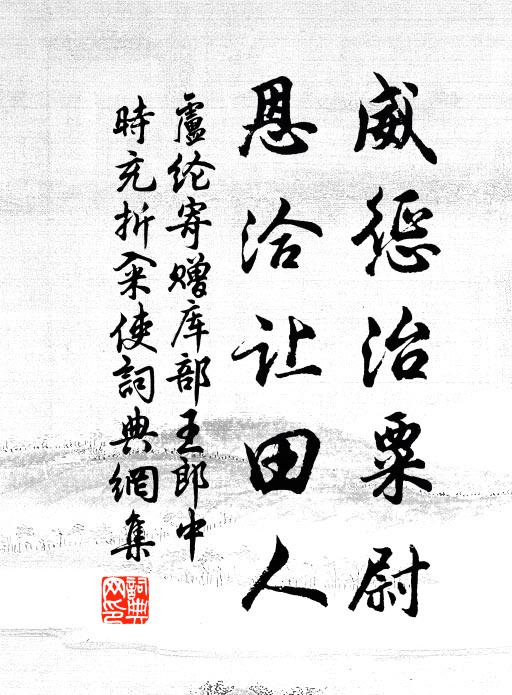 威惩治粟尉
恩洽让田人
盧纶寄赠库部王郎中
時充折籴使詞典網集
詞典网印